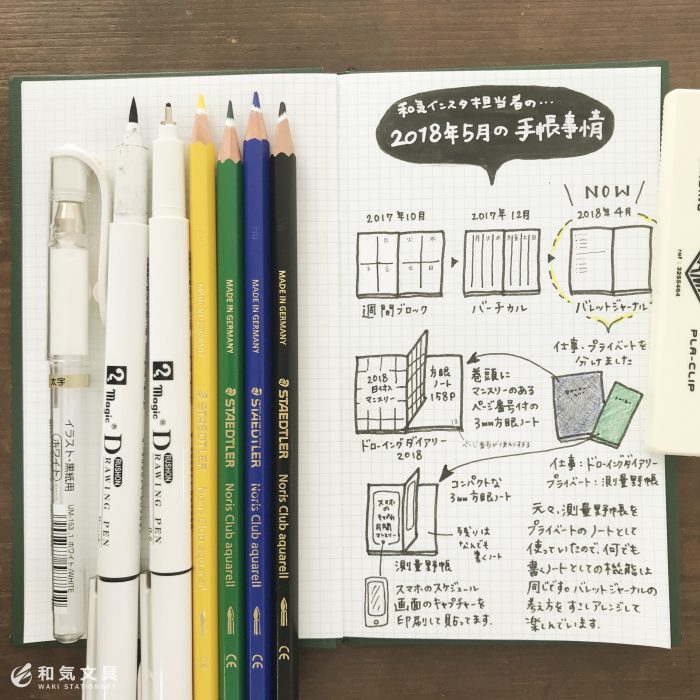 和気インスタ担当者の…
2018年5月の手帳事情
NOW
2017年10月
2017年12月
2018年4月
月 火 水
木 金 土 日
月 火 水 木 金 土 日
週間ブロック
バーチカル
バレットジャーナル
仕事・プライベートを
分けました
2018
日付入
マンスリー
方眼
ノート
158P
13
ドローイングダイアリー
2018
巻頭に
マンスリーのある
ページ番号付の
3mm方眼ノート
ページ番号が便利すぎる
仕事:ドローイングダイアリー
プライベート:測量野帳
コンパクトな
3mm方眼ノート
スマホ
のキャプチャ
月間
マンスリー
残りは
なんでも
書くノート
測量野帳
スマホのスケジュール
画面のキャプチャーを
印刷して貼ってます。
元々、測量野帳を
プライベートのノートとして
使っていたので、何でも
書くノートとしての機能は
同じです。バレットジャーナルの
考え方をすこしアレンジして
楽しんでいます。
太字
イラスト・黒紙用
(ホワイト)
UM-153.1 ホワイト/WHITE
Magic®
D RUSHON
RAWING PEN
Magic®
D RUSHON
RAWING PEN
STAEDTLER Noris Club aquarell CE
MADE IN GERMANY STAEDTLER Noris Club aquarell CE
MADE IN GERMANY STAEDTLER Noris Club aquarell CE
MADE IN GERMANY STAEDTLER Noris Club aquarell CE
ref : 3255464
PLA-CLIP
和気文具
WAKI STATIONERY